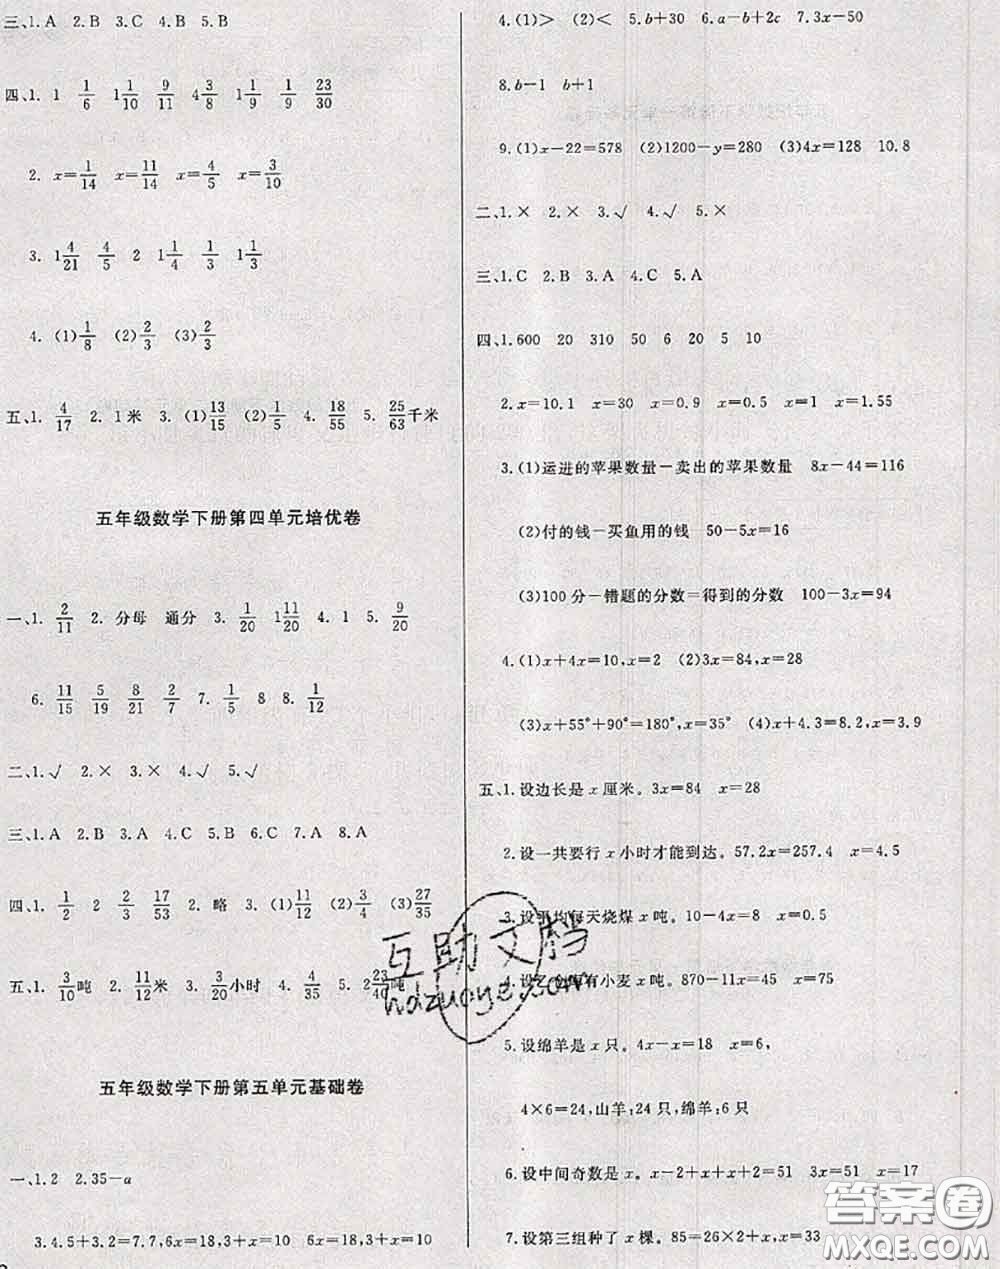 三、1.A 2.B 3.C 4.B 5.B
四、1. 1 1/6 1 1/10 9/11 4 3/8 1 1/9 1/9 23/30
2. x=1/14 x=11/14 x=4/5 x=3/10
3. 1 4/21 4/5 2 1 1/4 1/3 1 1/3
4. (1)1/8 (2)2/3 (3)2/3
五、1. 4/17 2. 1米 3. (1)13/15 (2)1/5 4. 18/55 5. 25/63千米
五年级数学下册第四单元培优卷
一、1. 2/11 2. 分母 通分 3. 1/20 1 11/20 4. 1 5. 9/20
6. 11/15 5/19 8/21 2/7 7. 1/5 8 8. 1/12
二、1.√ 2.× 3.× 4.√ 5.√
三、1.A 2.B 3.A 4.C 5.B 6.C 7.A 8.A
四、1. 1/2 2 2/3 17/53 2. 略 3. (1)11/12 (2)3/4 (3)27/35
五、1. 3/10吨 2. 11/12米 3. 3/20小时 4. 4/35 5. 2 23/40吨
五年级数学下册第五单元基础卷
一、1.2 2.35-a
3.4.5+3.2=7.7,6x=18,3+x=10 6x=18,3+x=10
4.(1)> (2)< 5.b+30 6.a-b+2c 7.3x-50
8.b-1 b+1
9.(1)x-22=578 (2)1200-y=280 (3)4x=128 10.8
二、1.× 2.× 3.√ 4.√ 5.×
三、1.C 2.B 3.A 4.C 5.A
四、1.600 20 310 50 6 20 5 10
2.x=10.1 x=30 x=0.9 x=0.5 x=1 x=1.55
3.(1)运进的苹果数量-卖出的苹果数量 8x-44=116
(2)付的钱-买鱼用的钱 50-5x=16
(3)100分-错题的分数=得到的分数 100-3x=94
4.(1)x+4x=10,x=2 (2)3x=84,x=28
(3)x+55°+90°=180°,x=35° (4)x+4.3=8.2,x=3.9
五、1.设边长是x厘米。3x=84 x=28
2.设一共要行x小时才能到达。57.2x=257.4 x=4.5
3.设平均每天烧煤x吨。10-4x=8 x=0.5
4.设乙仓库有小麦x吨。870-11x=45 x=75
5.设绵羊是x只。4x-x=18 x=6,
4×6=24,山羊:24只,绵羊:6只
6.设中间奇数是x。x-2+x+x+2=51 3x=51 x=17
7.设第三组种了x棵。85=26×2+x,x=33
互助文档
hdzuoye.com
答案圈
MXQE.COM